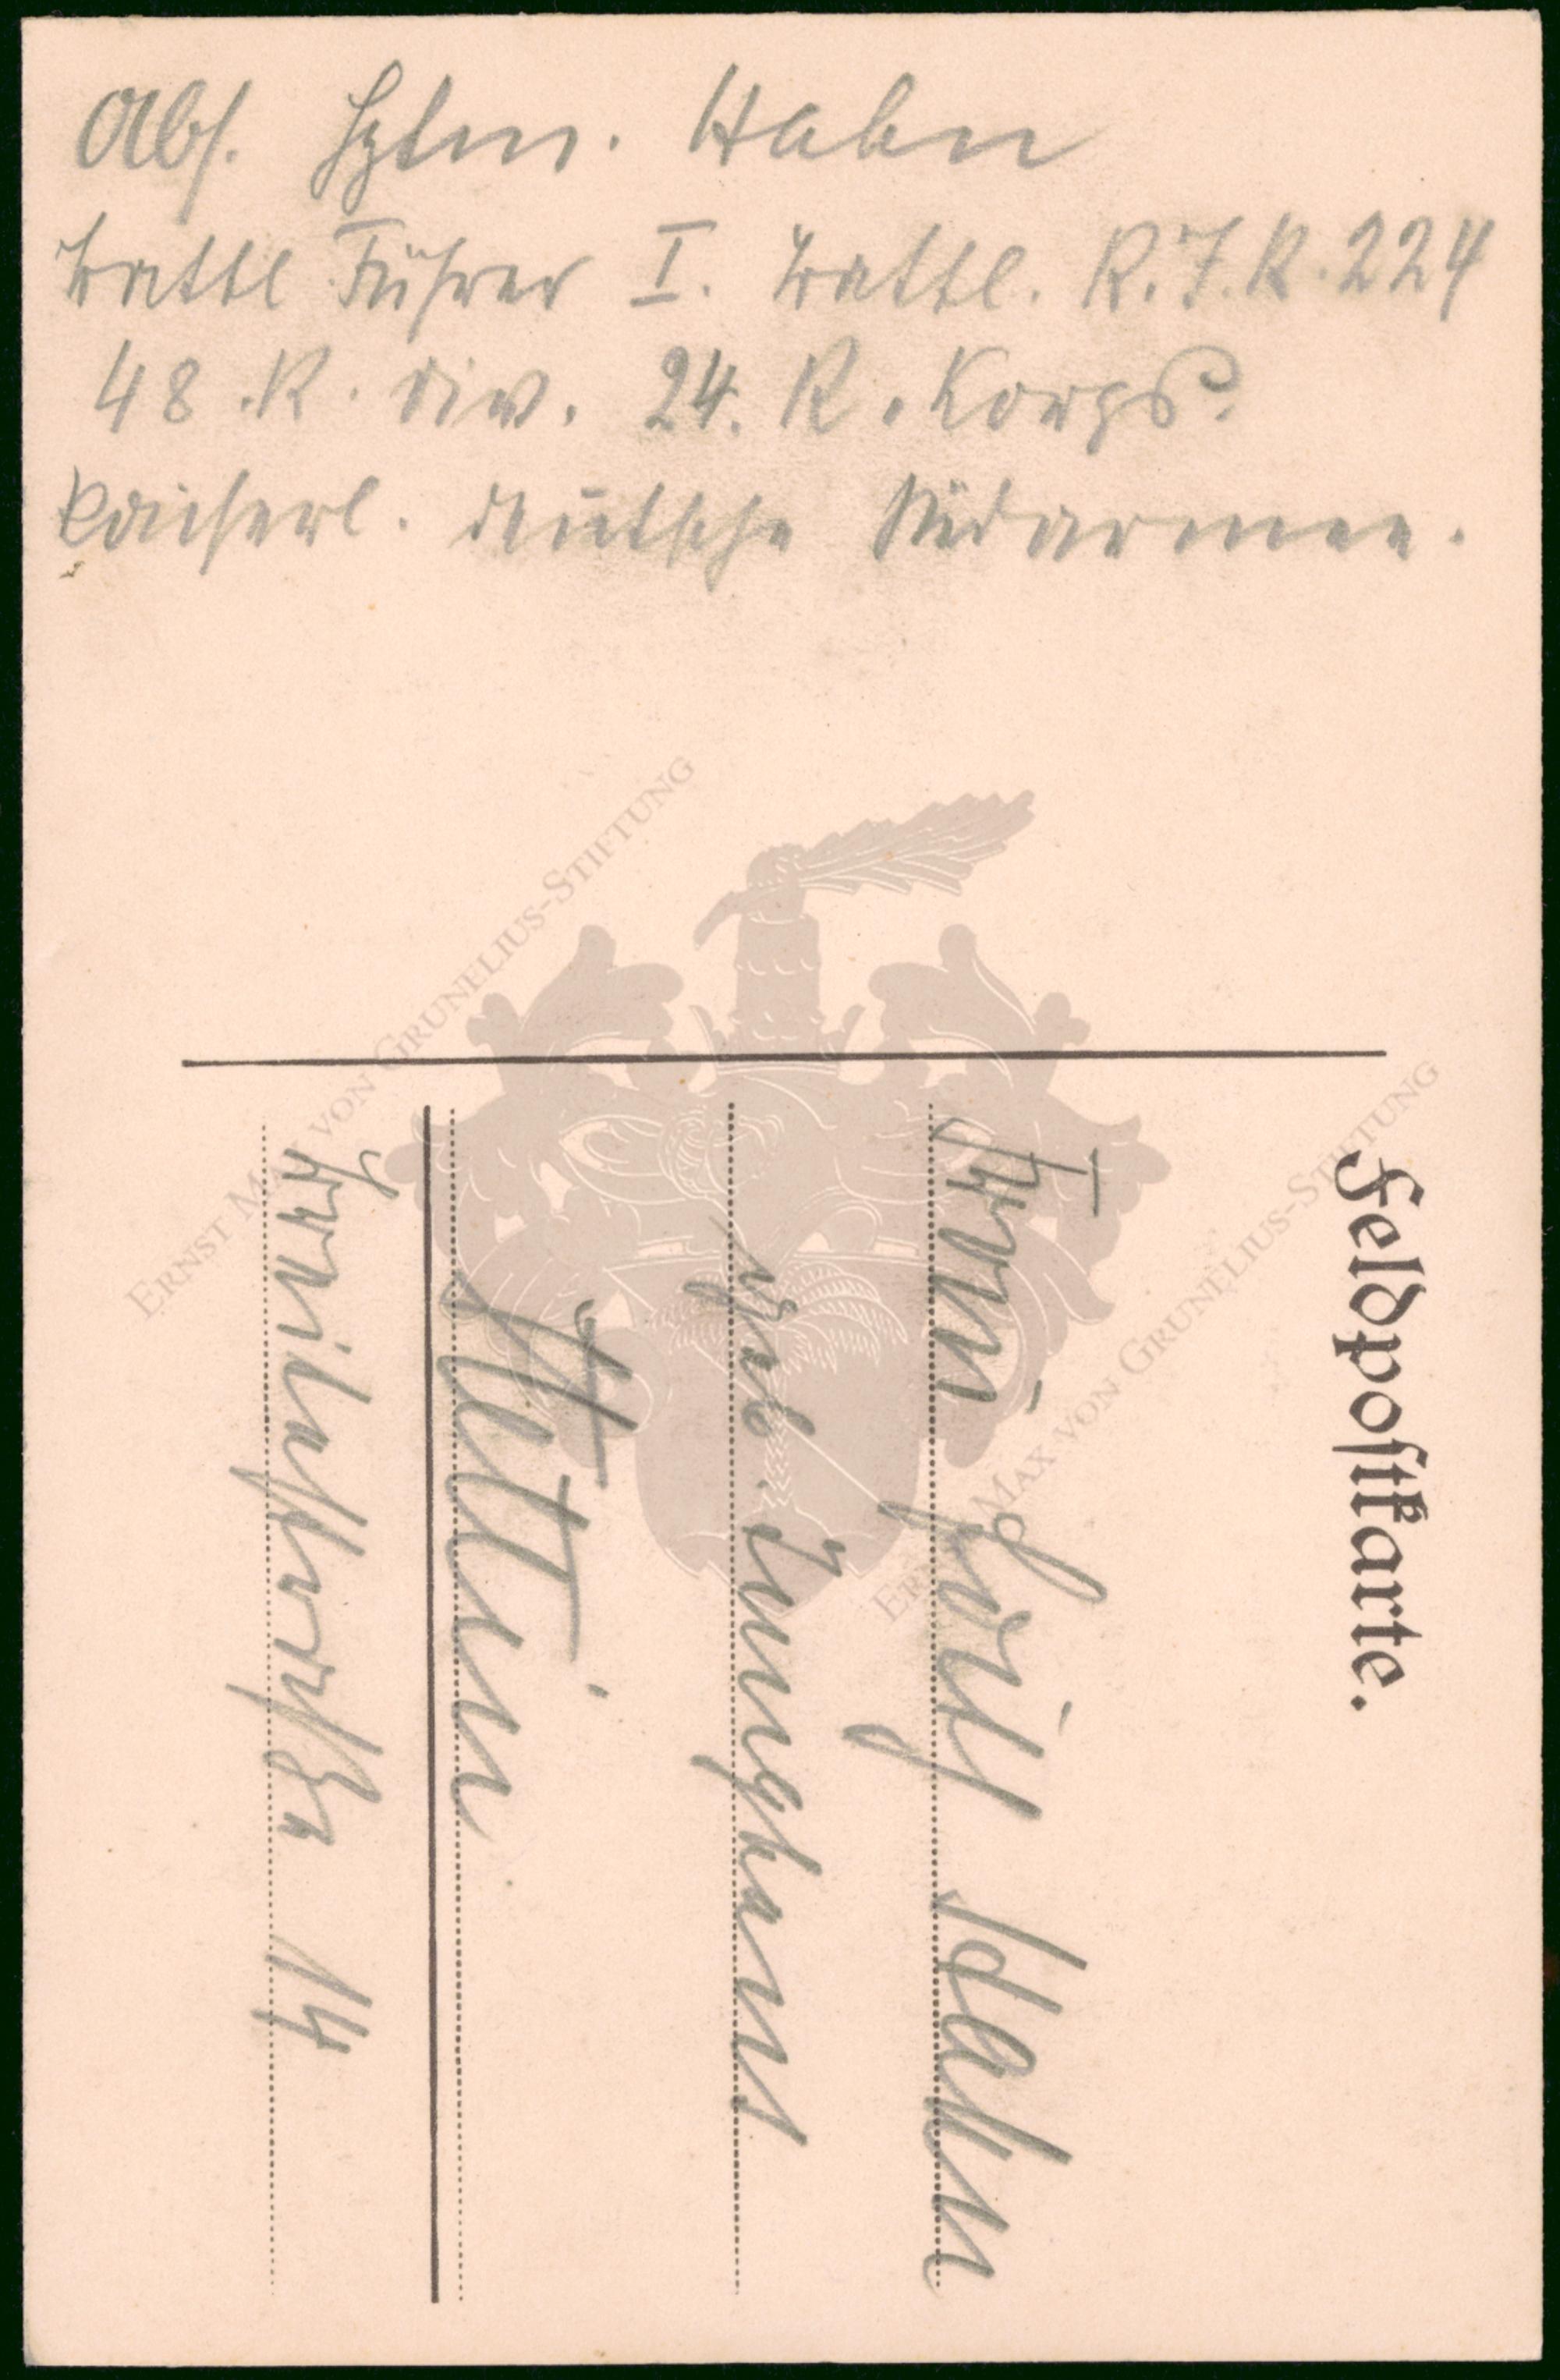 Abs. Hptm. Hahn
Battl Führer I. Battl. R.I.R. 224
48. R. Div. 24. R. Korps.
Kaiserl. deutsche Südarmee.
Feldpostkarte.
Frau Hahn
geb. Junghans
Stettin
14
ERNST MAX VON GRUNELIUS-STIFTUNG
ERNST MAX VON GRUNELIUS-STIFTUNG